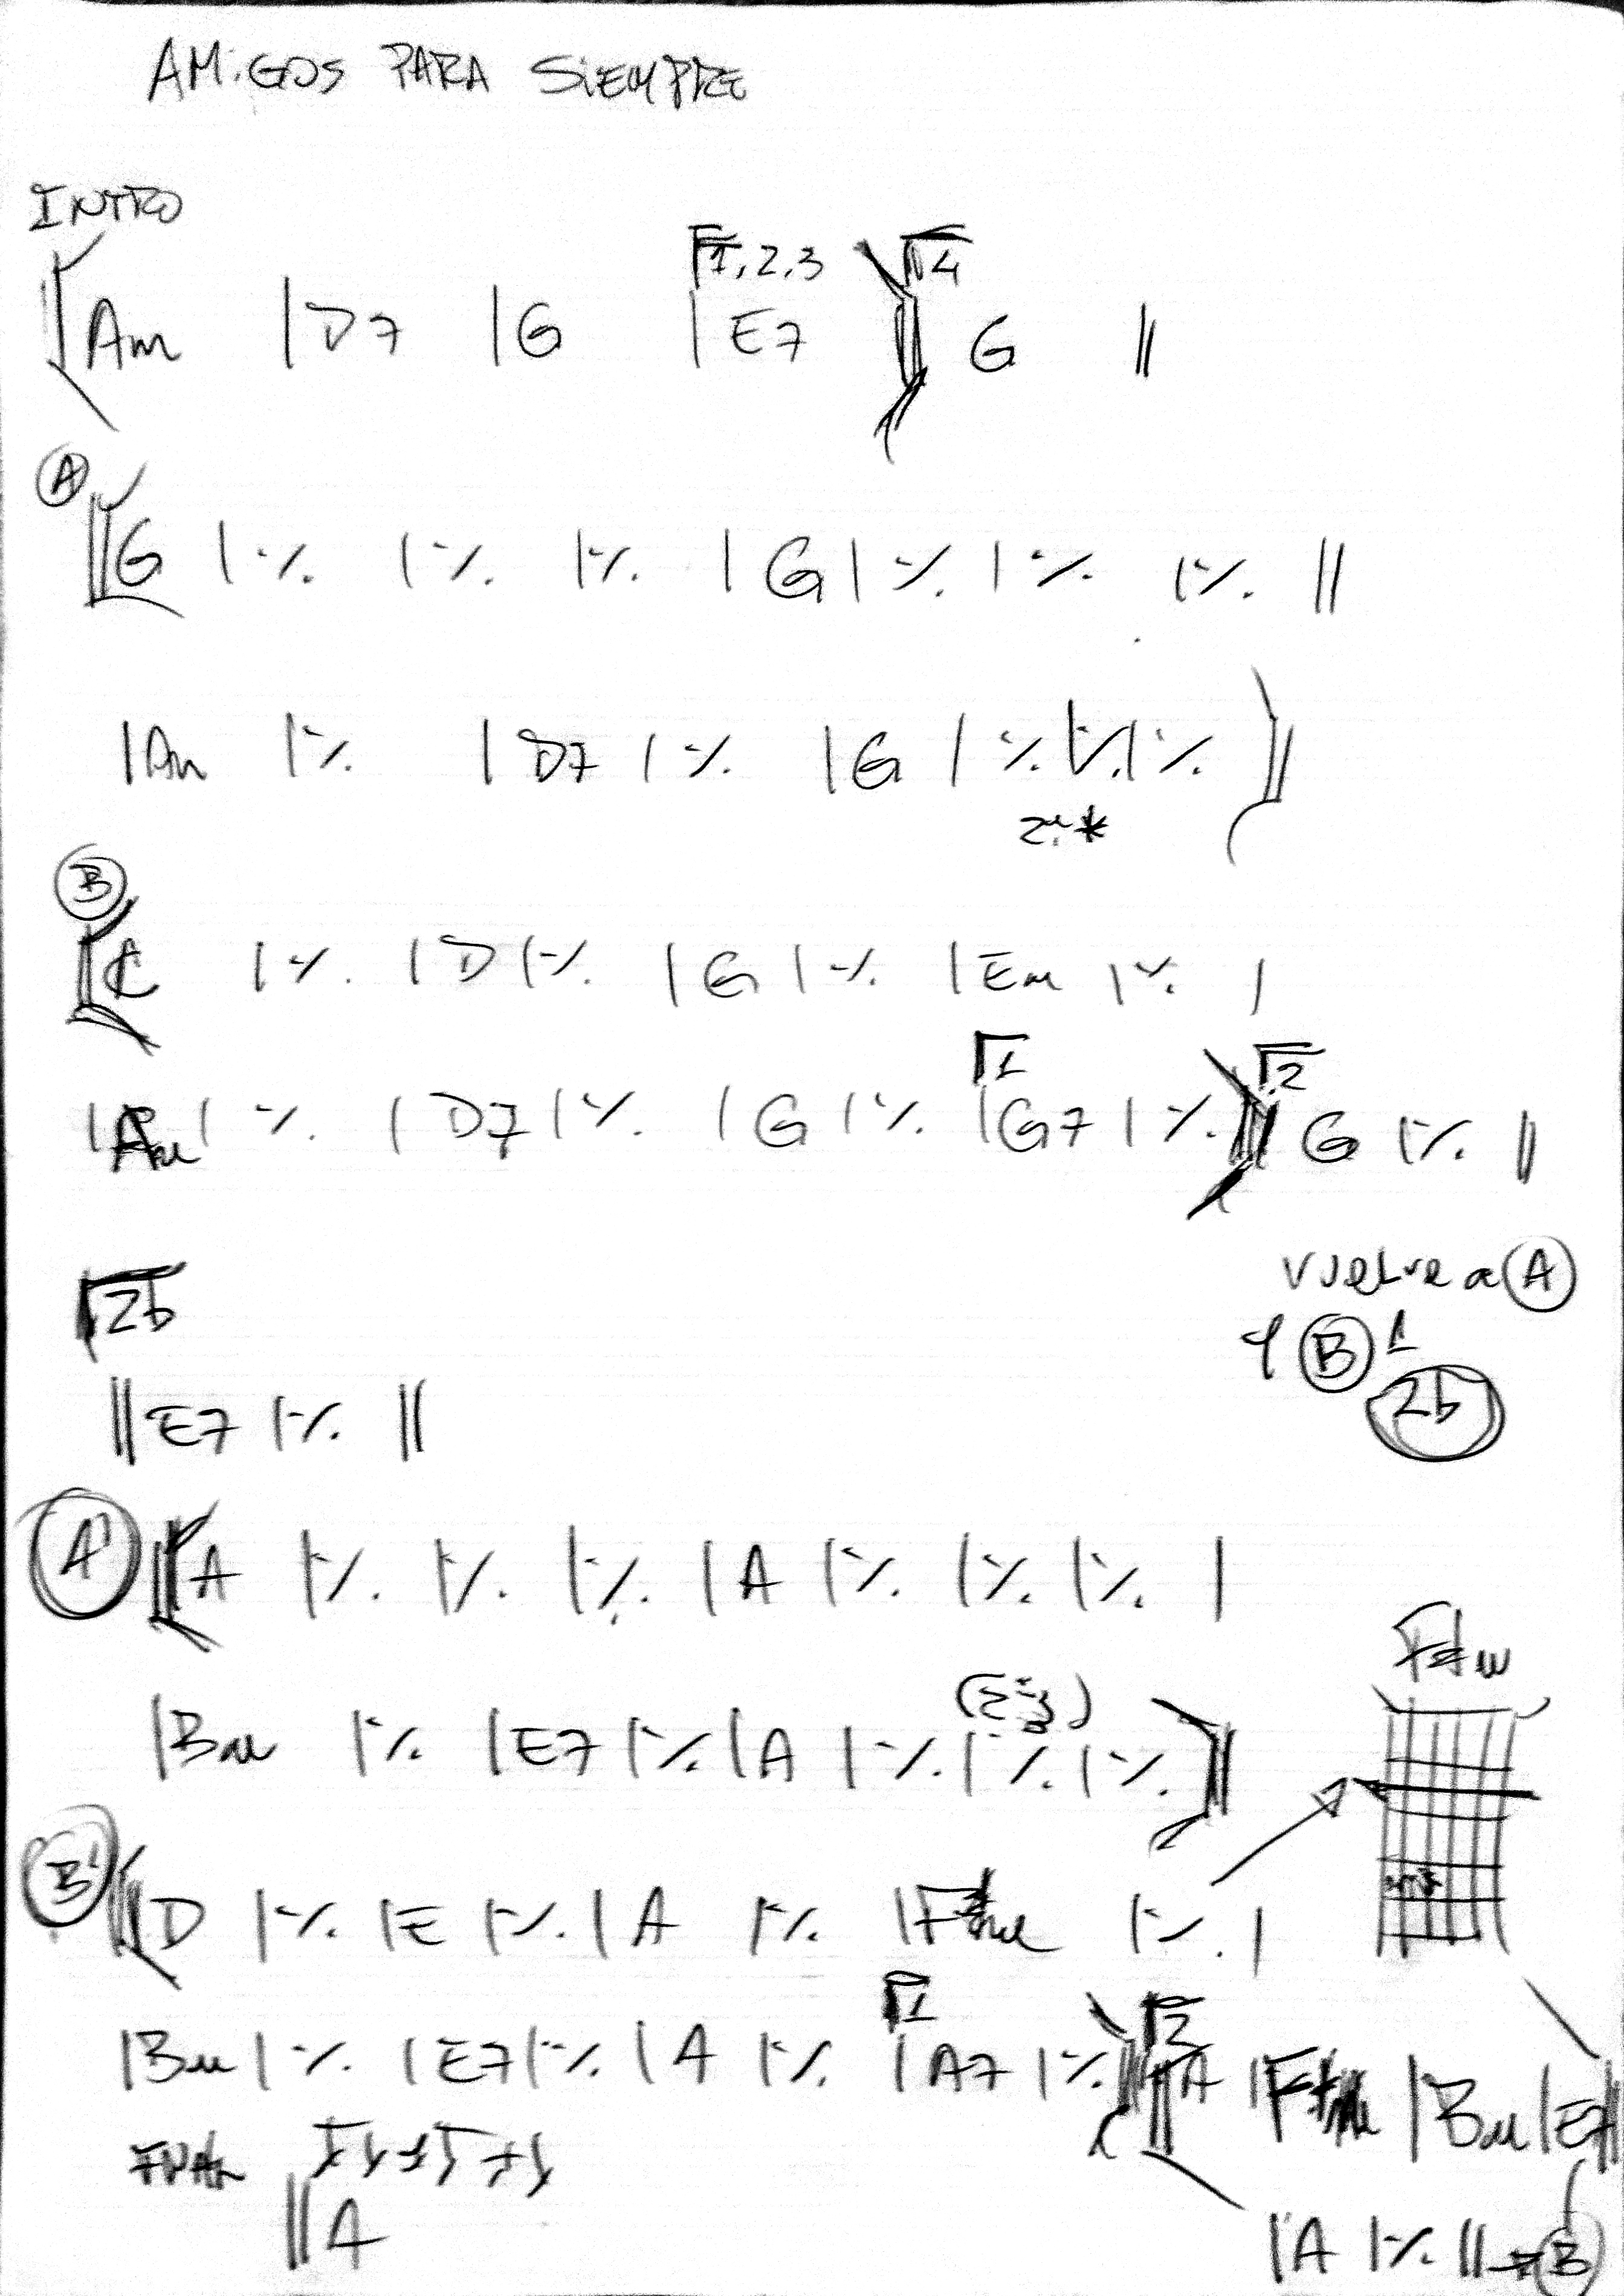 AMiGOS PARA SiEMPRE
INTRO
1, 2, 3 4
Am | D7 | G | E7 G ||
A
|| G | ٪ | ٪ | ٪ | G | ٪ | ٪ | ٪ ||
| Am | ٪ | D7 | ٪ | G | ٪ | ٪ | ٪ ||
*
B
|| C | ٪ | D | ٪ | G | ٪ | Em | ٪ |
1 2
| Am | ٪ | D7 | ٪ | G | ٪ | G7 | ٪ || G | ٪ ||
vuelve a A
y B 1
2b
2b
|| E7 | ٪ ||
A'
|| A | ٪ | ٪ | ٪ | A | ٪ | ٪ | ٪ |
F#m
| Bm | ٪ | E7 | ٪ | A | ٪ | ٪ | ٪ ||
B'
|| D | ٪ | E | ٪ | A | ٪ | F#m | ٪ |
1 2
| Bm | ٪ | E7 | ٪ | A | ٪ | A7 | ٪ || A | F#m | Bm | E7 ||
|| A
| A | ٪ || → B